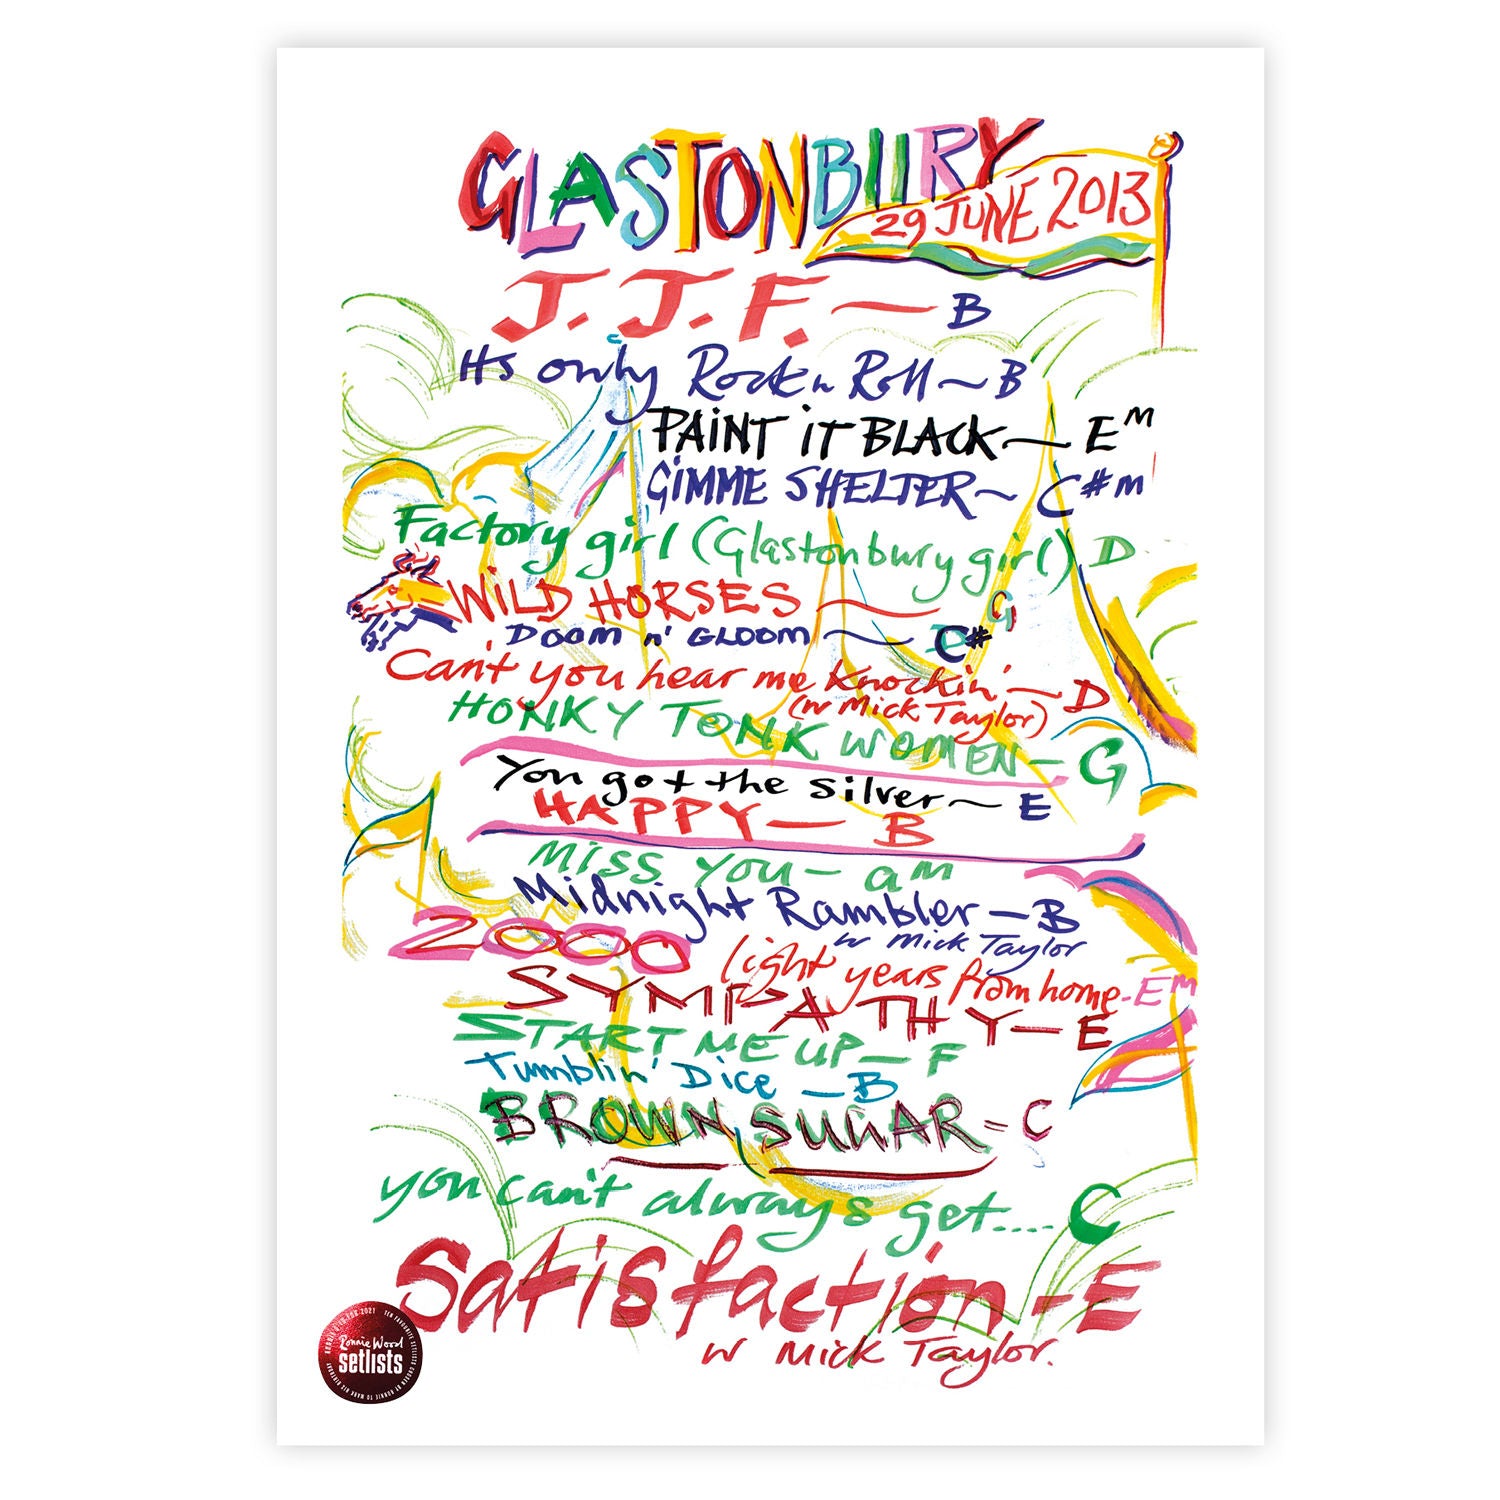 GLASTONBURY
29 JUNE 2013
J.J.F. — B
Its only Rock n Roll ~ B
PAiNT iT BLACK — Em
GiMME SHELTER ~ C#m
Factory girl (Glastonbury girl) D
WiLD HORSES — G
DOOM n' GLOOM — C#
Can't you hear me knockin' — D
(w Mick Taylor)
HONKY TONK WOMEN — G
You got the silver ~ E
HAPPY — B
Miss You — am
Midnight Rambler — B
w Mick Taylor
2000 light years from home - Em
SYMPATHY — E
START ME UP — F
Tumblin' Dice — B
BROWN SUGAR = C
you can't always get.... C
Satisfaction - E
w Mick Taylor.
Ronnie Wood
setlists